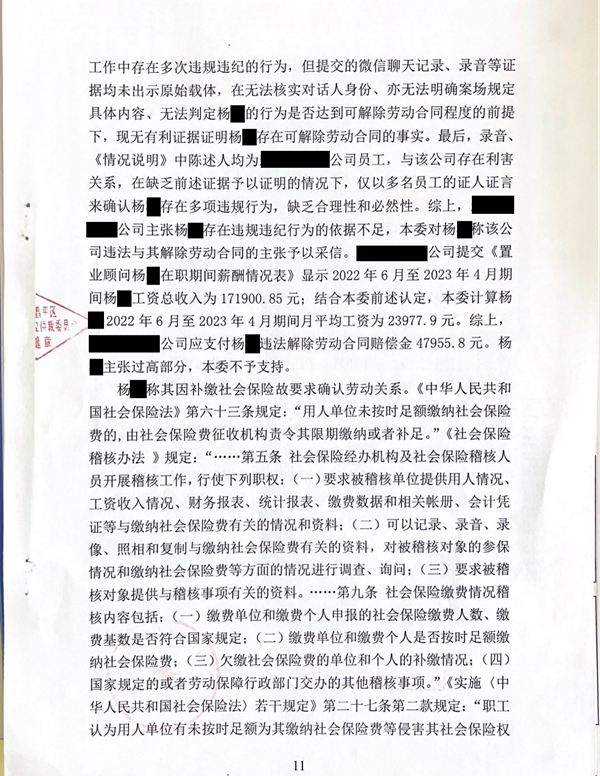 工作中存在多次违规违纪的行为，但提交的微信聊天记录、录音等证
据均未出示原始载体，在无法核实对话人身份、亦无法明确案场规定
具体内容、无法判定杨 的行为是否达到可解除劳动合同程度的前提
下，现无有利证据证明杨 存在可解除劳动合同的事实。最后，录音、
《情况说明》中陈述人均为 公司员工，与该公司存在利害
关系，在缺乏前述证据予以证明的情况下，仅以多名员工的证人证言
来确认杨 存在多项违规行为，缺乏合理性和必然性。综上，
公司主张杨 存在违规违纪行为的依据不足，本委对杨 称该公
司违法与其解除劳动合同的主张予以采信。 公司提交《置
业顾问杨 在职期间薪酬情况表》显示 2022 年 6 月至 2023 年 4 月期
间杨 工资总收入为 171900.85 元；结合本委前述认定，本委计算杨
2022 年 6 月至 2023 年 4 月期间月平均工资为 23977.9 元。综上，
公司应支付杨 违法解除劳动合同赔偿金 47955.8 元。杨
主张过高部分，本委不予支持。
杨 称其因补缴社会保险故要求确认劳动关系。《中华人民共和
国社会保险法》第六十三条规定：“用人单位未按时足额缴纳社会保险
费的,由社会保险费征收机构责令其限期缴纳或者补足。”《社会保险
稽核办法 》规定：“……第五条 社会保险经办机构及社会保险稽核人
员开展稽核工作，行使下列职权：（一）要求被稽核单位提供用人情况、
工资收入情况、财务报表、统计报表、缴费数据和相关帐册、会计凭
证等与缴纳社会保险费有关的情况和资料；（二）可以记录、录音、录
像、照相和复制与缴纳社会保险费有关的资料，对被稽核对象的参保
情况和缴纳社会保险费等方面的情况进行调查、询问；（三）要求被稽
核对象提供与稽核事项有关的资料。……第九条 社会保险缴费情况稽
核内容包括：（一）缴费单位和缴费个人申报的社会保险缴费人数、缴
费基数是否符合国家规定；（二）缴费单位和缴费个人是否按时足额缴
纳社会保险费；（三）欠缴社会保险费的单位和个人的补缴情况；（四）
国家规定的或者劳动保障行政部门交办的其他稽核事项。”《实施〈中
华人民共和国社会保险法〉若干规定》第二十七条第二款规定：“职工
认为用人单位有未按时足额为其缴纳社会保险费等侵害其社会保险权
11